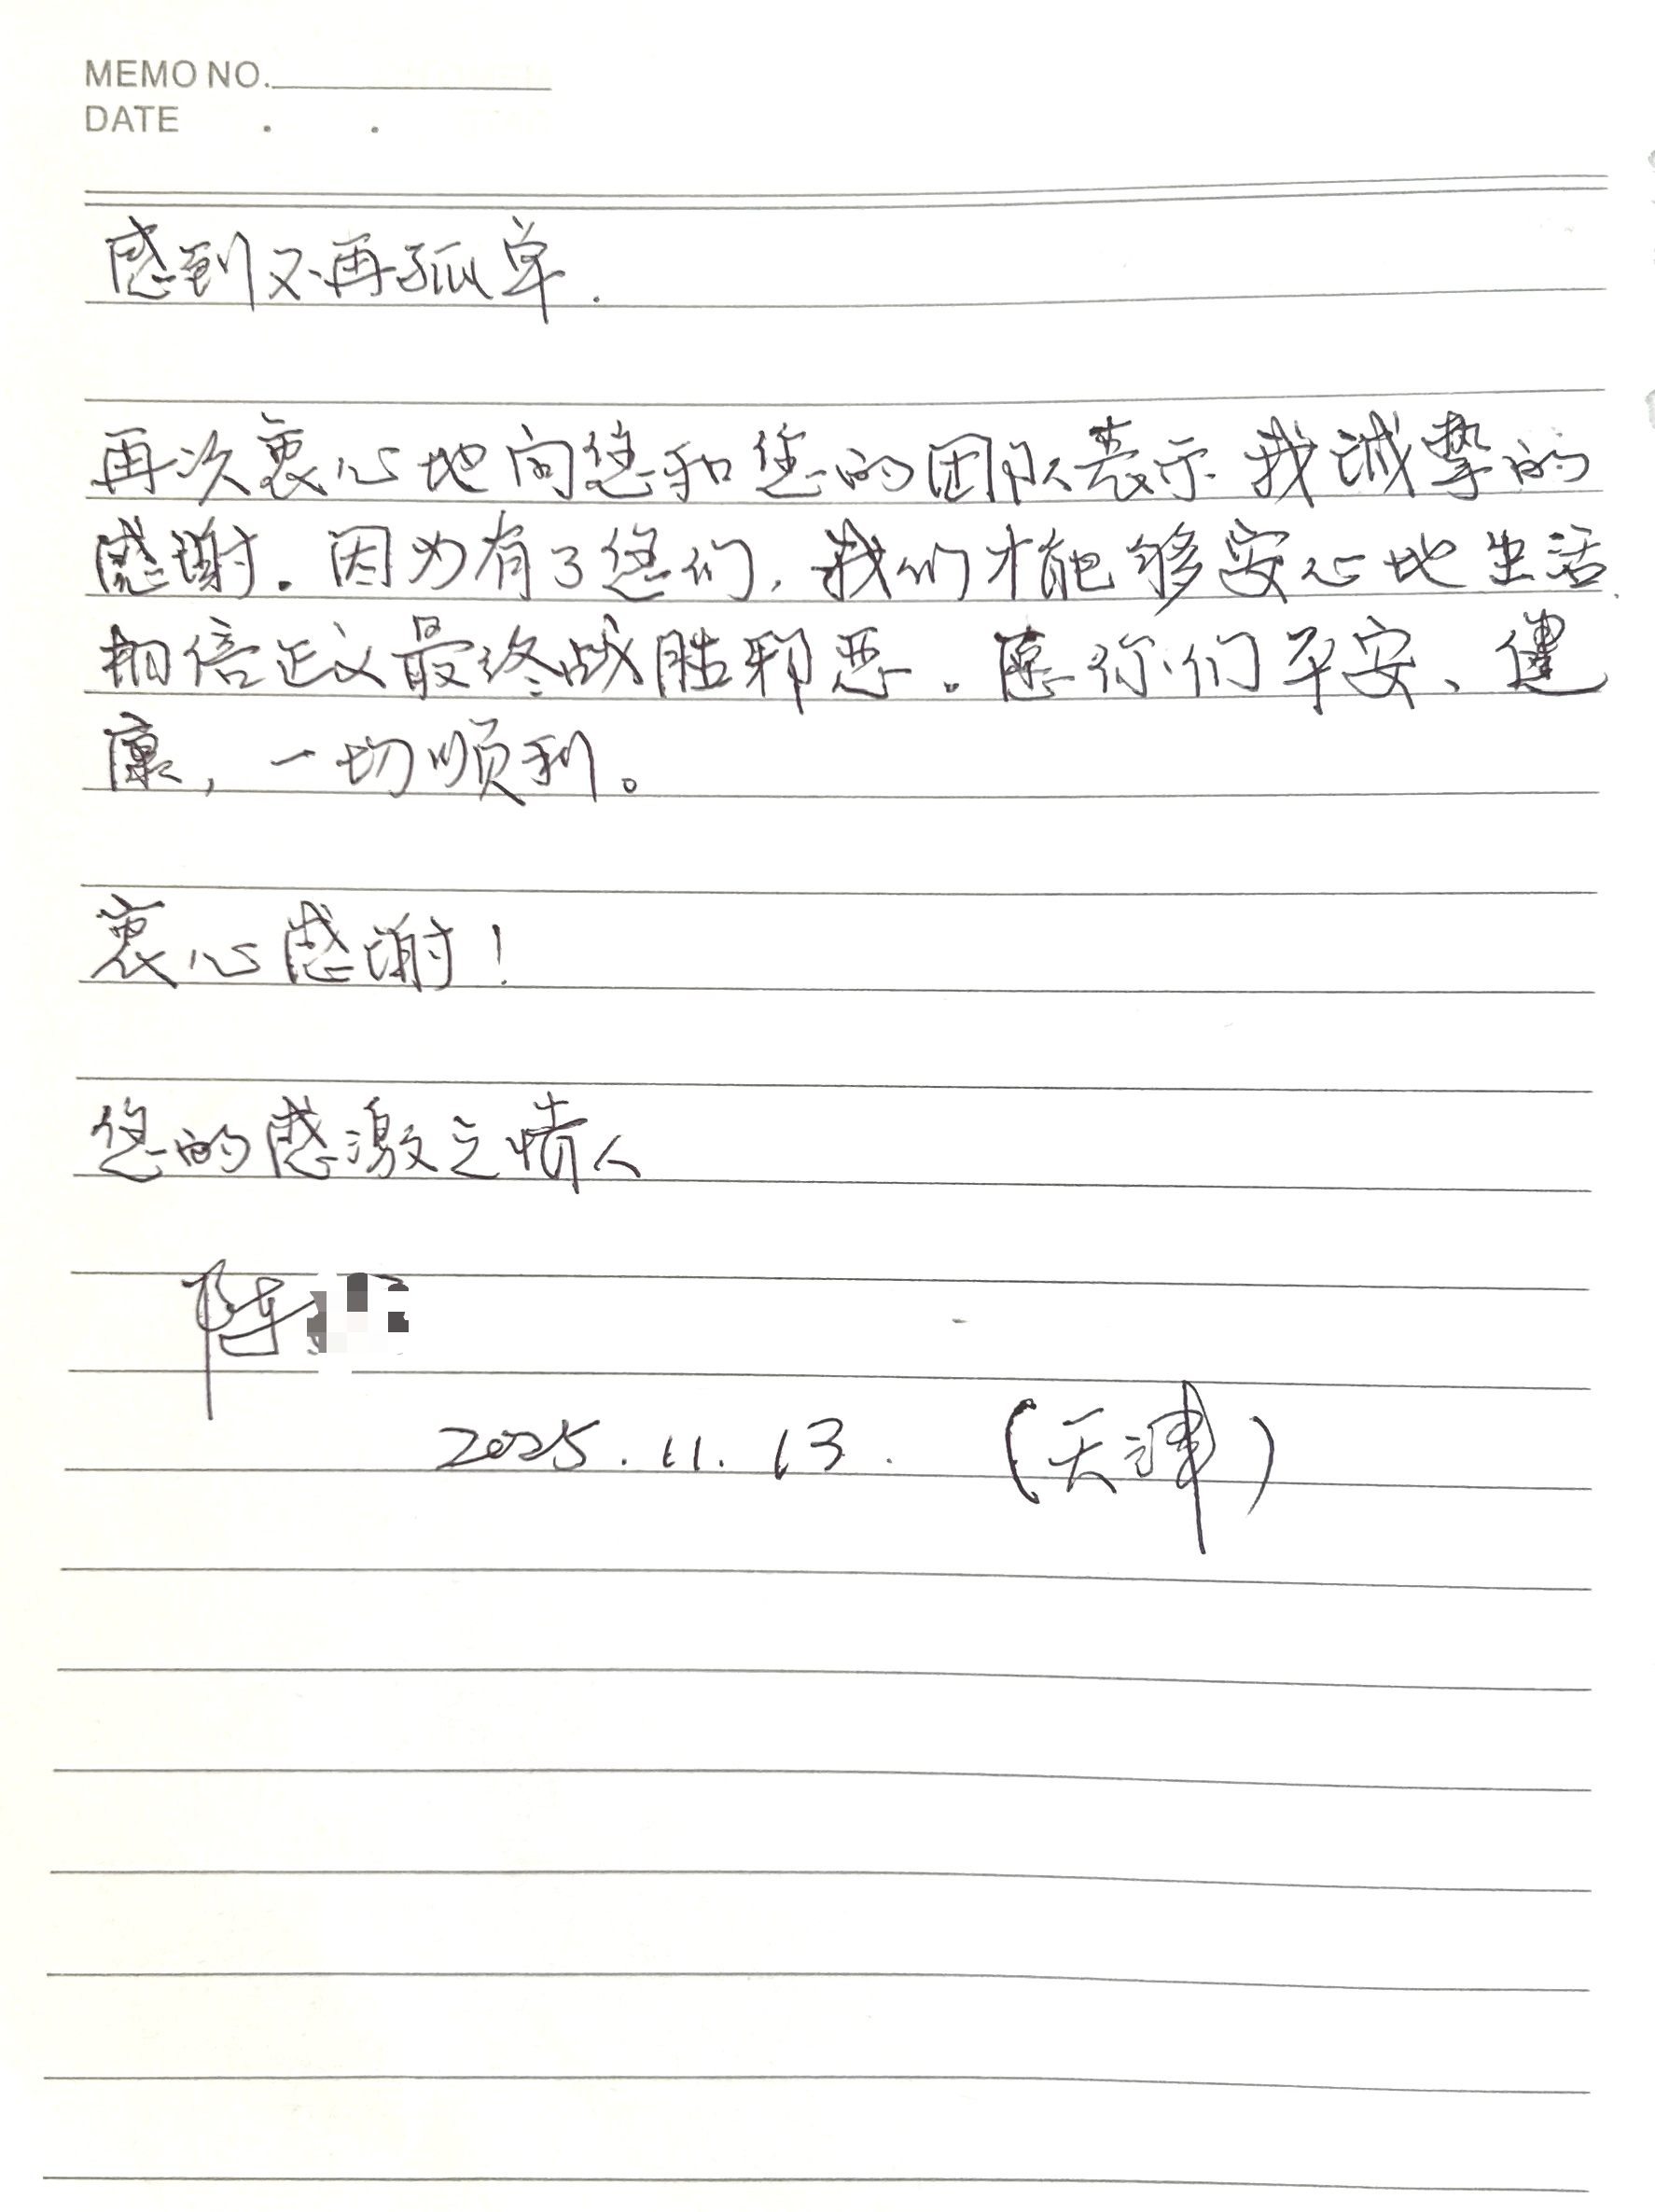 MEMO NO.
DATE . .
感到不再孤单.
再次衷心地向您和您的团队表示我诚挚的
感谢。因为有了您们,我们才能够安心地生活.
相信正义最终战胜邪恶。愿你们平安、健
康,一切顺利。
衷心感谢!
您的感激之情人
陈
2025.11.13. (天津)